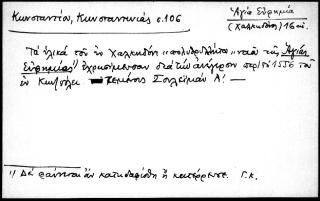 Κωνσταντίου, Κωνσταντινιάς σ. 106
Ἁγία Εὐφημία
(Χαλκηδόνι) 16 αἰ.
Τὰ ὑλικὰ τοῦ ἐν Χαλκηδόνι "πολυθρυλήτου" ναοῦ τῆς Ἁγίας
Εὐφημίας¹⁾ ἐχρησίμευσαν διὰ τὴν ἀνέγερσιν περὶ τὸ 1556 τοῦ
ἐν Κων/πόλει τεμένους Σουλεϊμὰν Α!—
1) Δὲ φαίνεται ἂν κατηδαφίσθη ἢ κατέρρευσε. Γ.Κ.